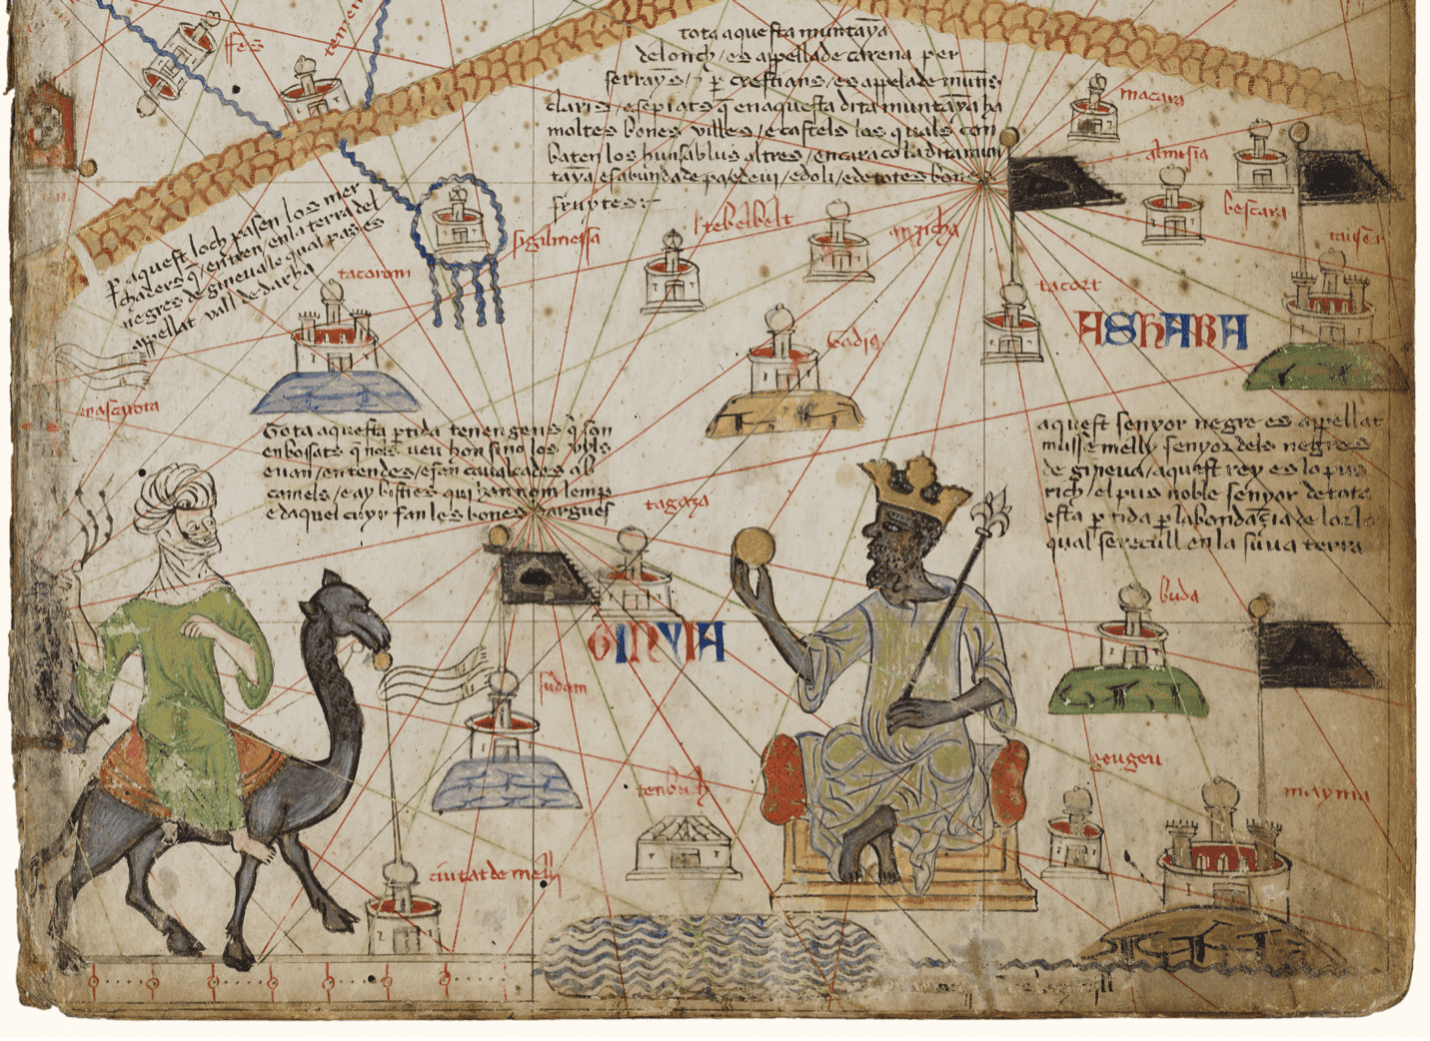 ffes
tota aquesta muntaya
de lonch / es appellade carena per
serrayns / ⁊ p crestians / es appelade muntis
claris e sepiats q en aquesta dita muntaya ha
moltes bones villes / e castels los quals con
baten los huns ab lus altres / encara co la dita mun
taya es abunda de pa e de vi / e doli / e de totes bones
fruytes
macara
almisia
bescara
p aquest loch pasen los mer
chaders q / entren / en la terra del
negres de gineva / le qual pas es
appellat vall de darha
sigilmessa
tebelbelt
anzicha
tacort
ASHARA
tacorom
Tota aquesta ptida tenen gens q son
enbossats q nols veu hon sino los uyls
e van / en tendes / e fan cavalcades ab
camels / e ay bisties qui han nom lemp
e daquel cuyr fan les bones dargues
aquest senyor negre es appellat
musse melly senyor dels negres
de gineva / aquest rey es lo pus
rich / el pus noble senyor de tota
esta ptida p labondazia de lor lo
qual se recull en la suua terra
tagaza
GINYIA
sudam
buda
tenbuch
geugeu
mayma
ciutat de melli